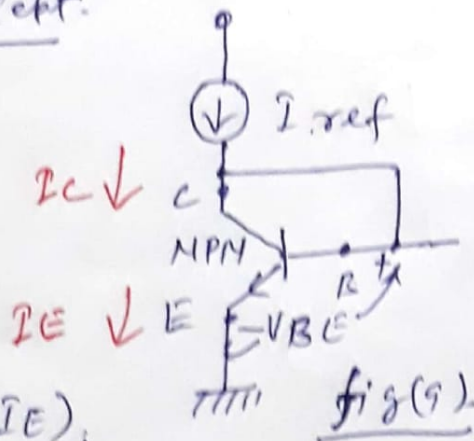 ept.
I.ref
Ic ↓ C
NPN
B +
IE ↓ E -VBE
fig(9).
IE).